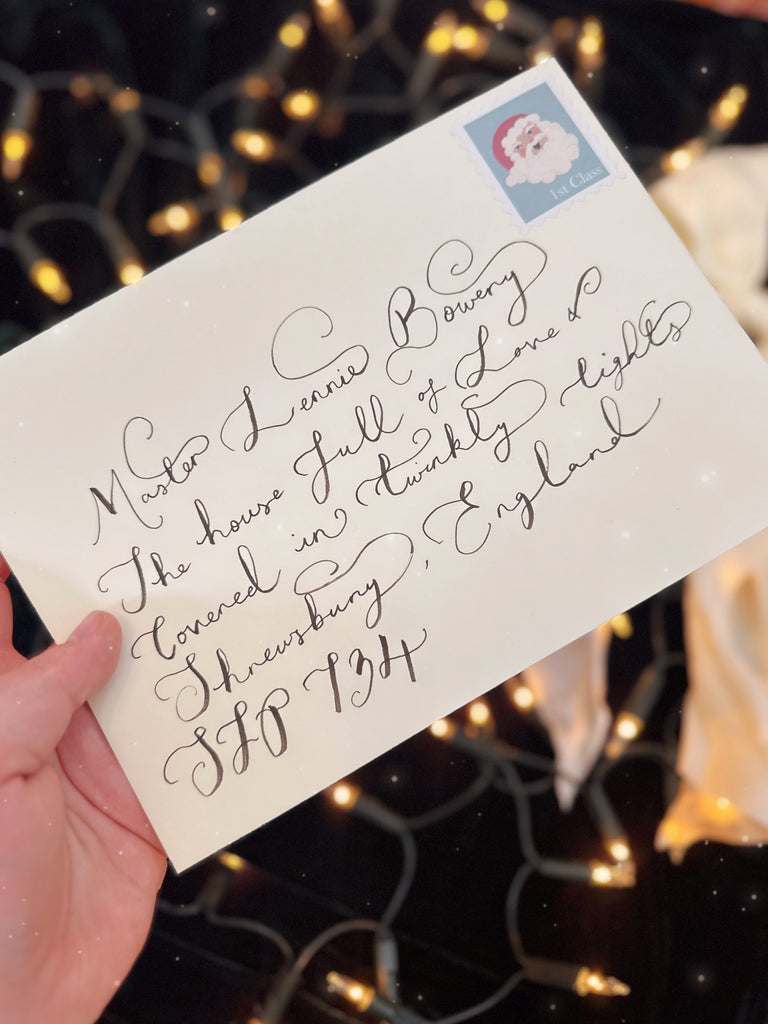 1st Class
Master Lennie Bowery
The house full of Love &
Covered in twinkly lights
Shrewsbury, England
SLP 734